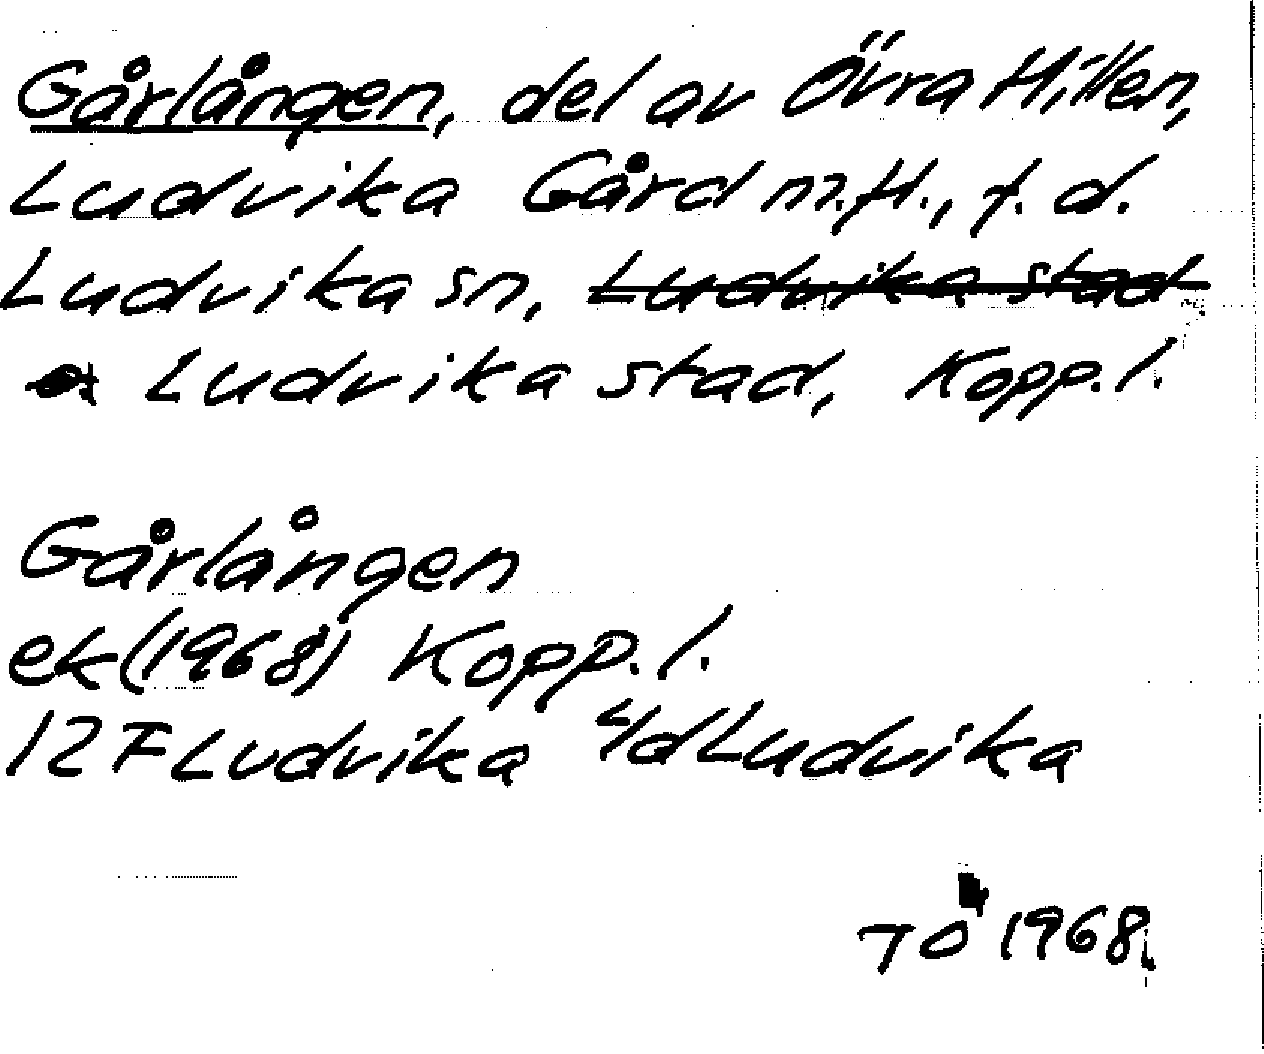 Gårlången, del av Övra Hillen,
Ludvika Gård m.fl., f.d.
Ludvika sn, Ludvika stad
Ludvika stad, Kopp.l.
Gårlången
ek (1968) Kopp.l.
12 F Ludvika 4d Ludvika
TÖ 1968.